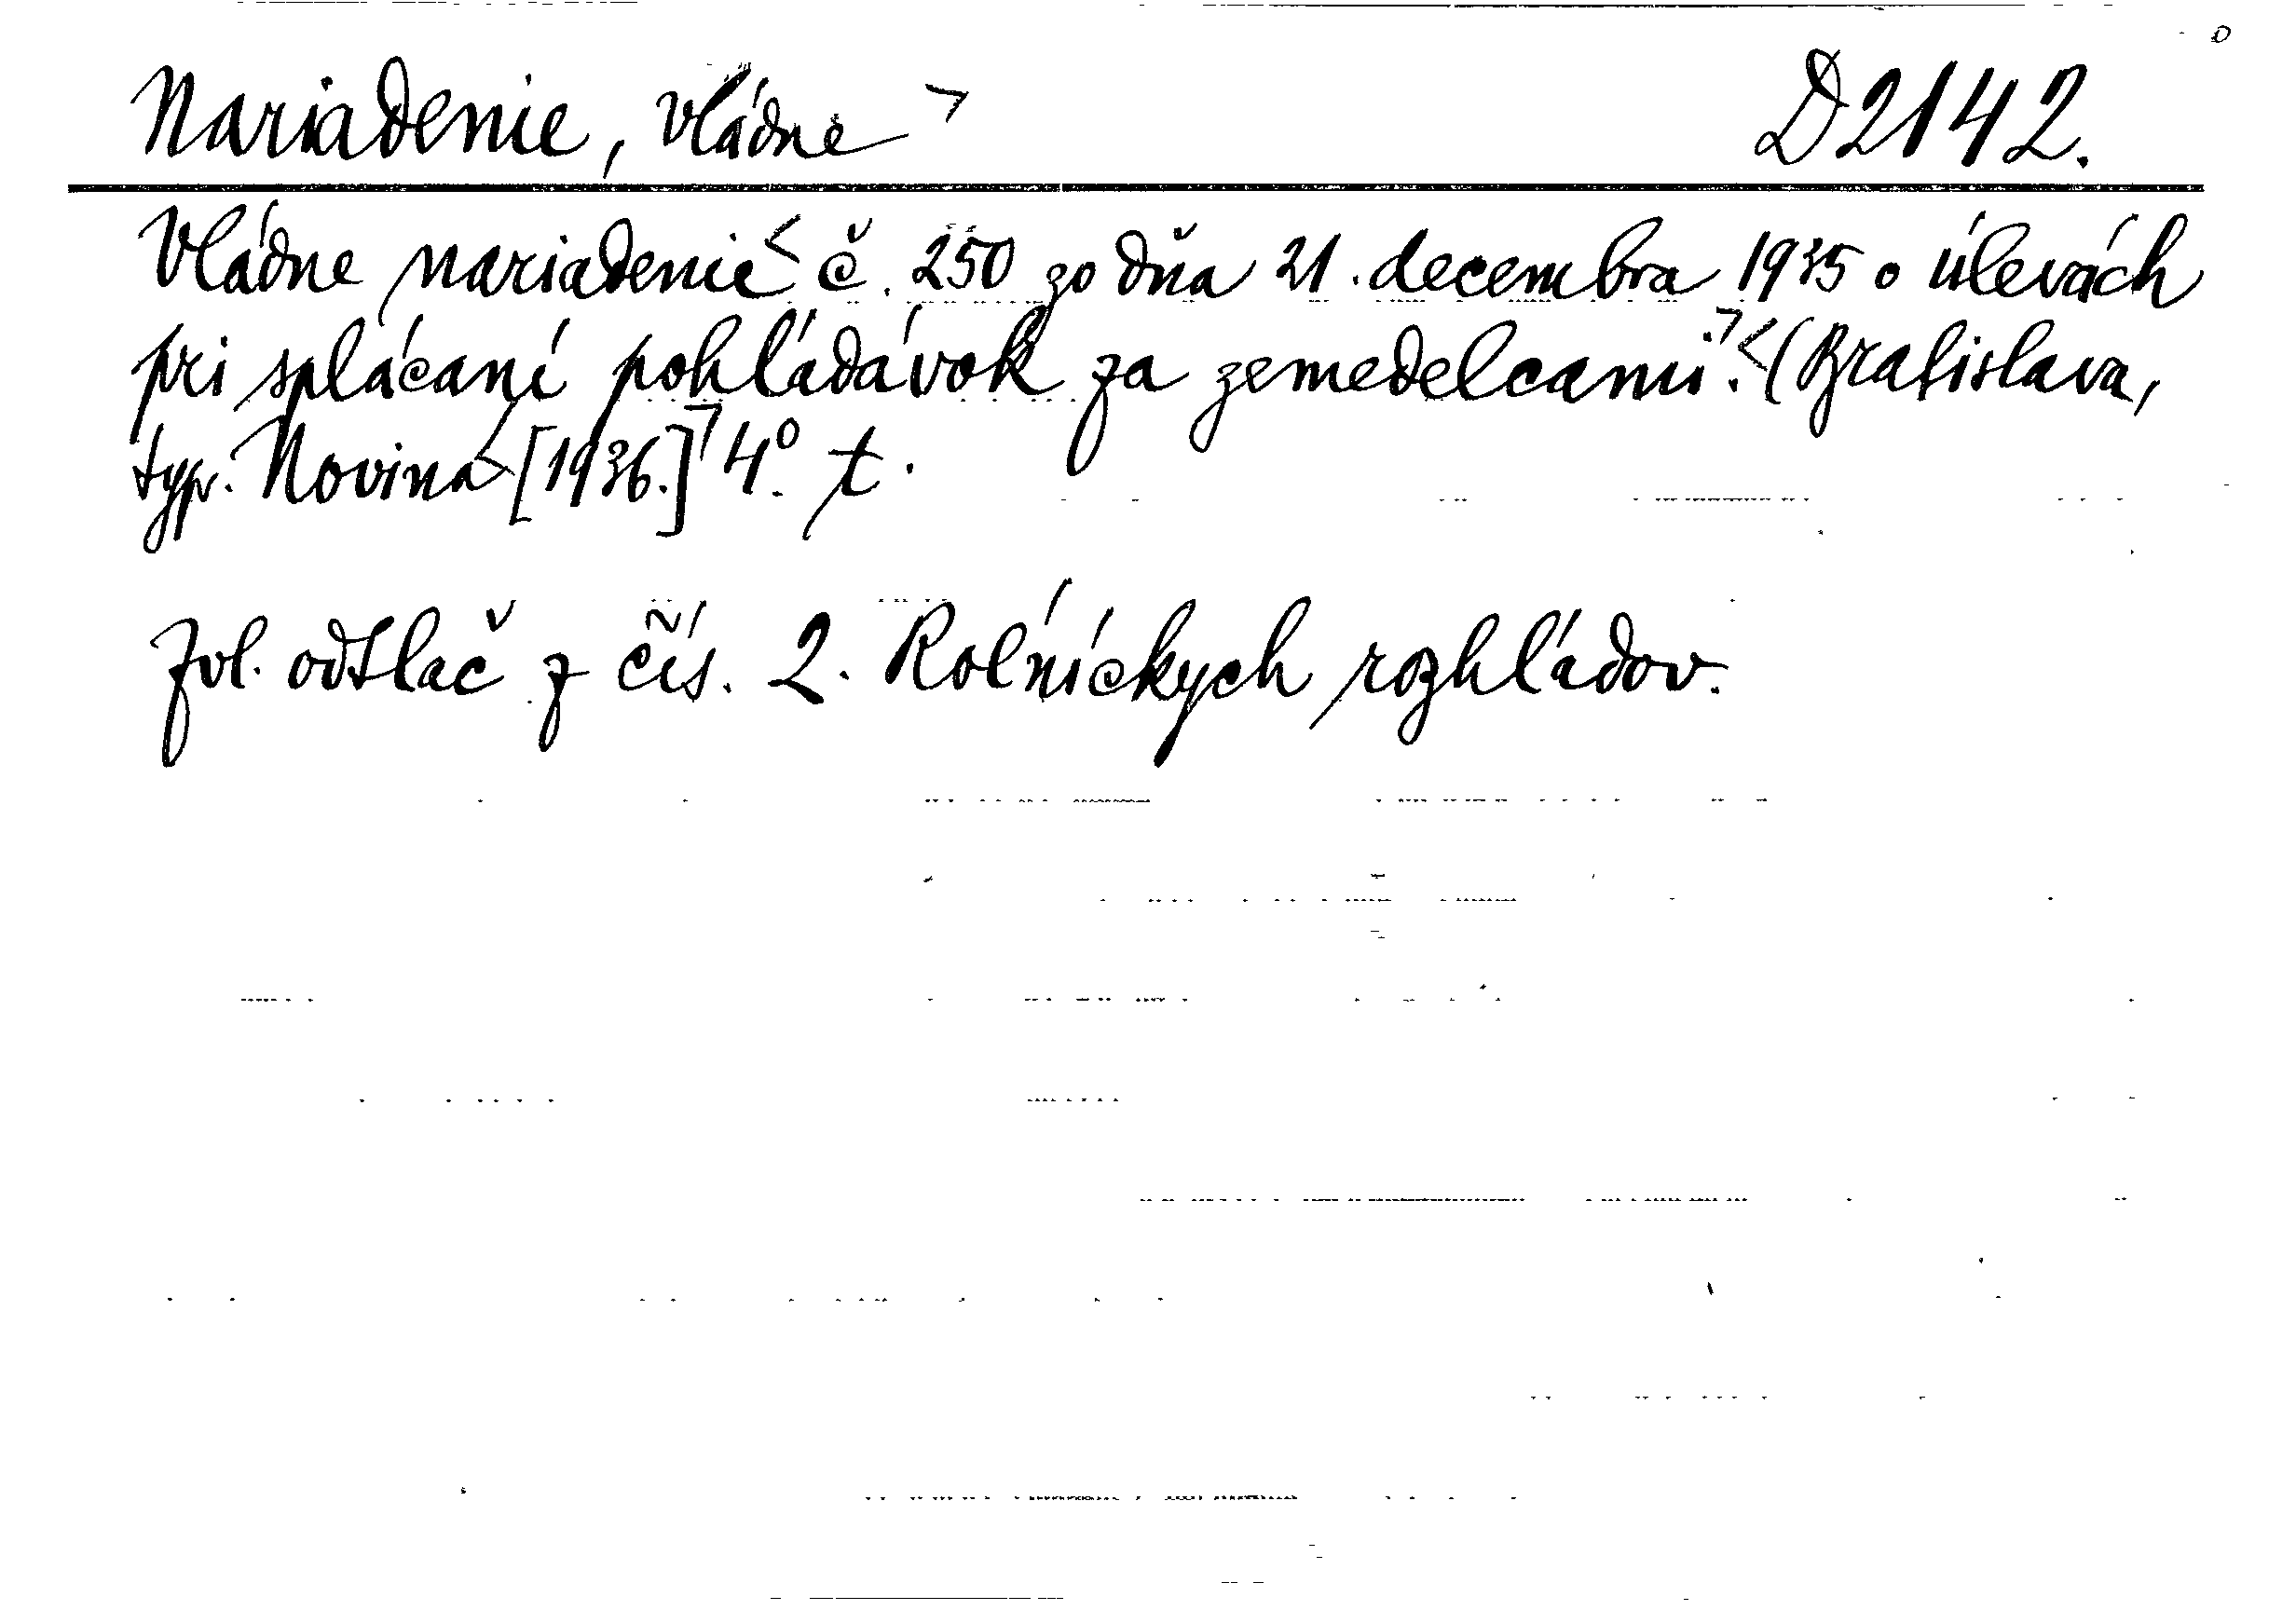 Nariadenie, vládne D2142.
Vládne nariadenie č. 250 zo dňa 21. decembra 1935 o úlevách
pri splácaní pohľadávok za zemedelcami. (Bratislava,
typ. Novina [1936.] 4°. t.
Zvl. odtlač z čís. 2. Roľníckych rozhľadov.